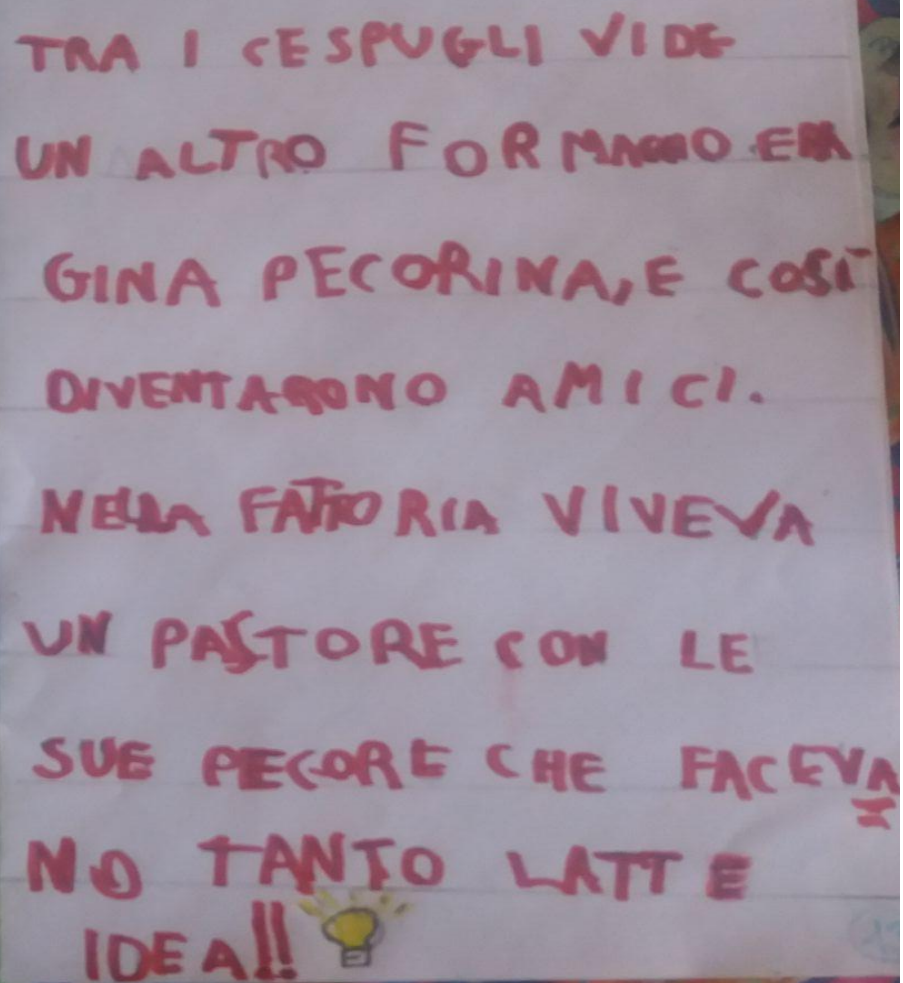 TRA I CESPUGLI VIDE
UN ALTRO FORMAGGIO ERA
GINA PECORINA, E COSÌ
DIVENTARONO AMICI.
NELLA FATTORIA VIVEVA
UN PASTORE CON LE
SUE PECORE CHE FACEVA=
NO TANTO LATTE
IDEA!!
23